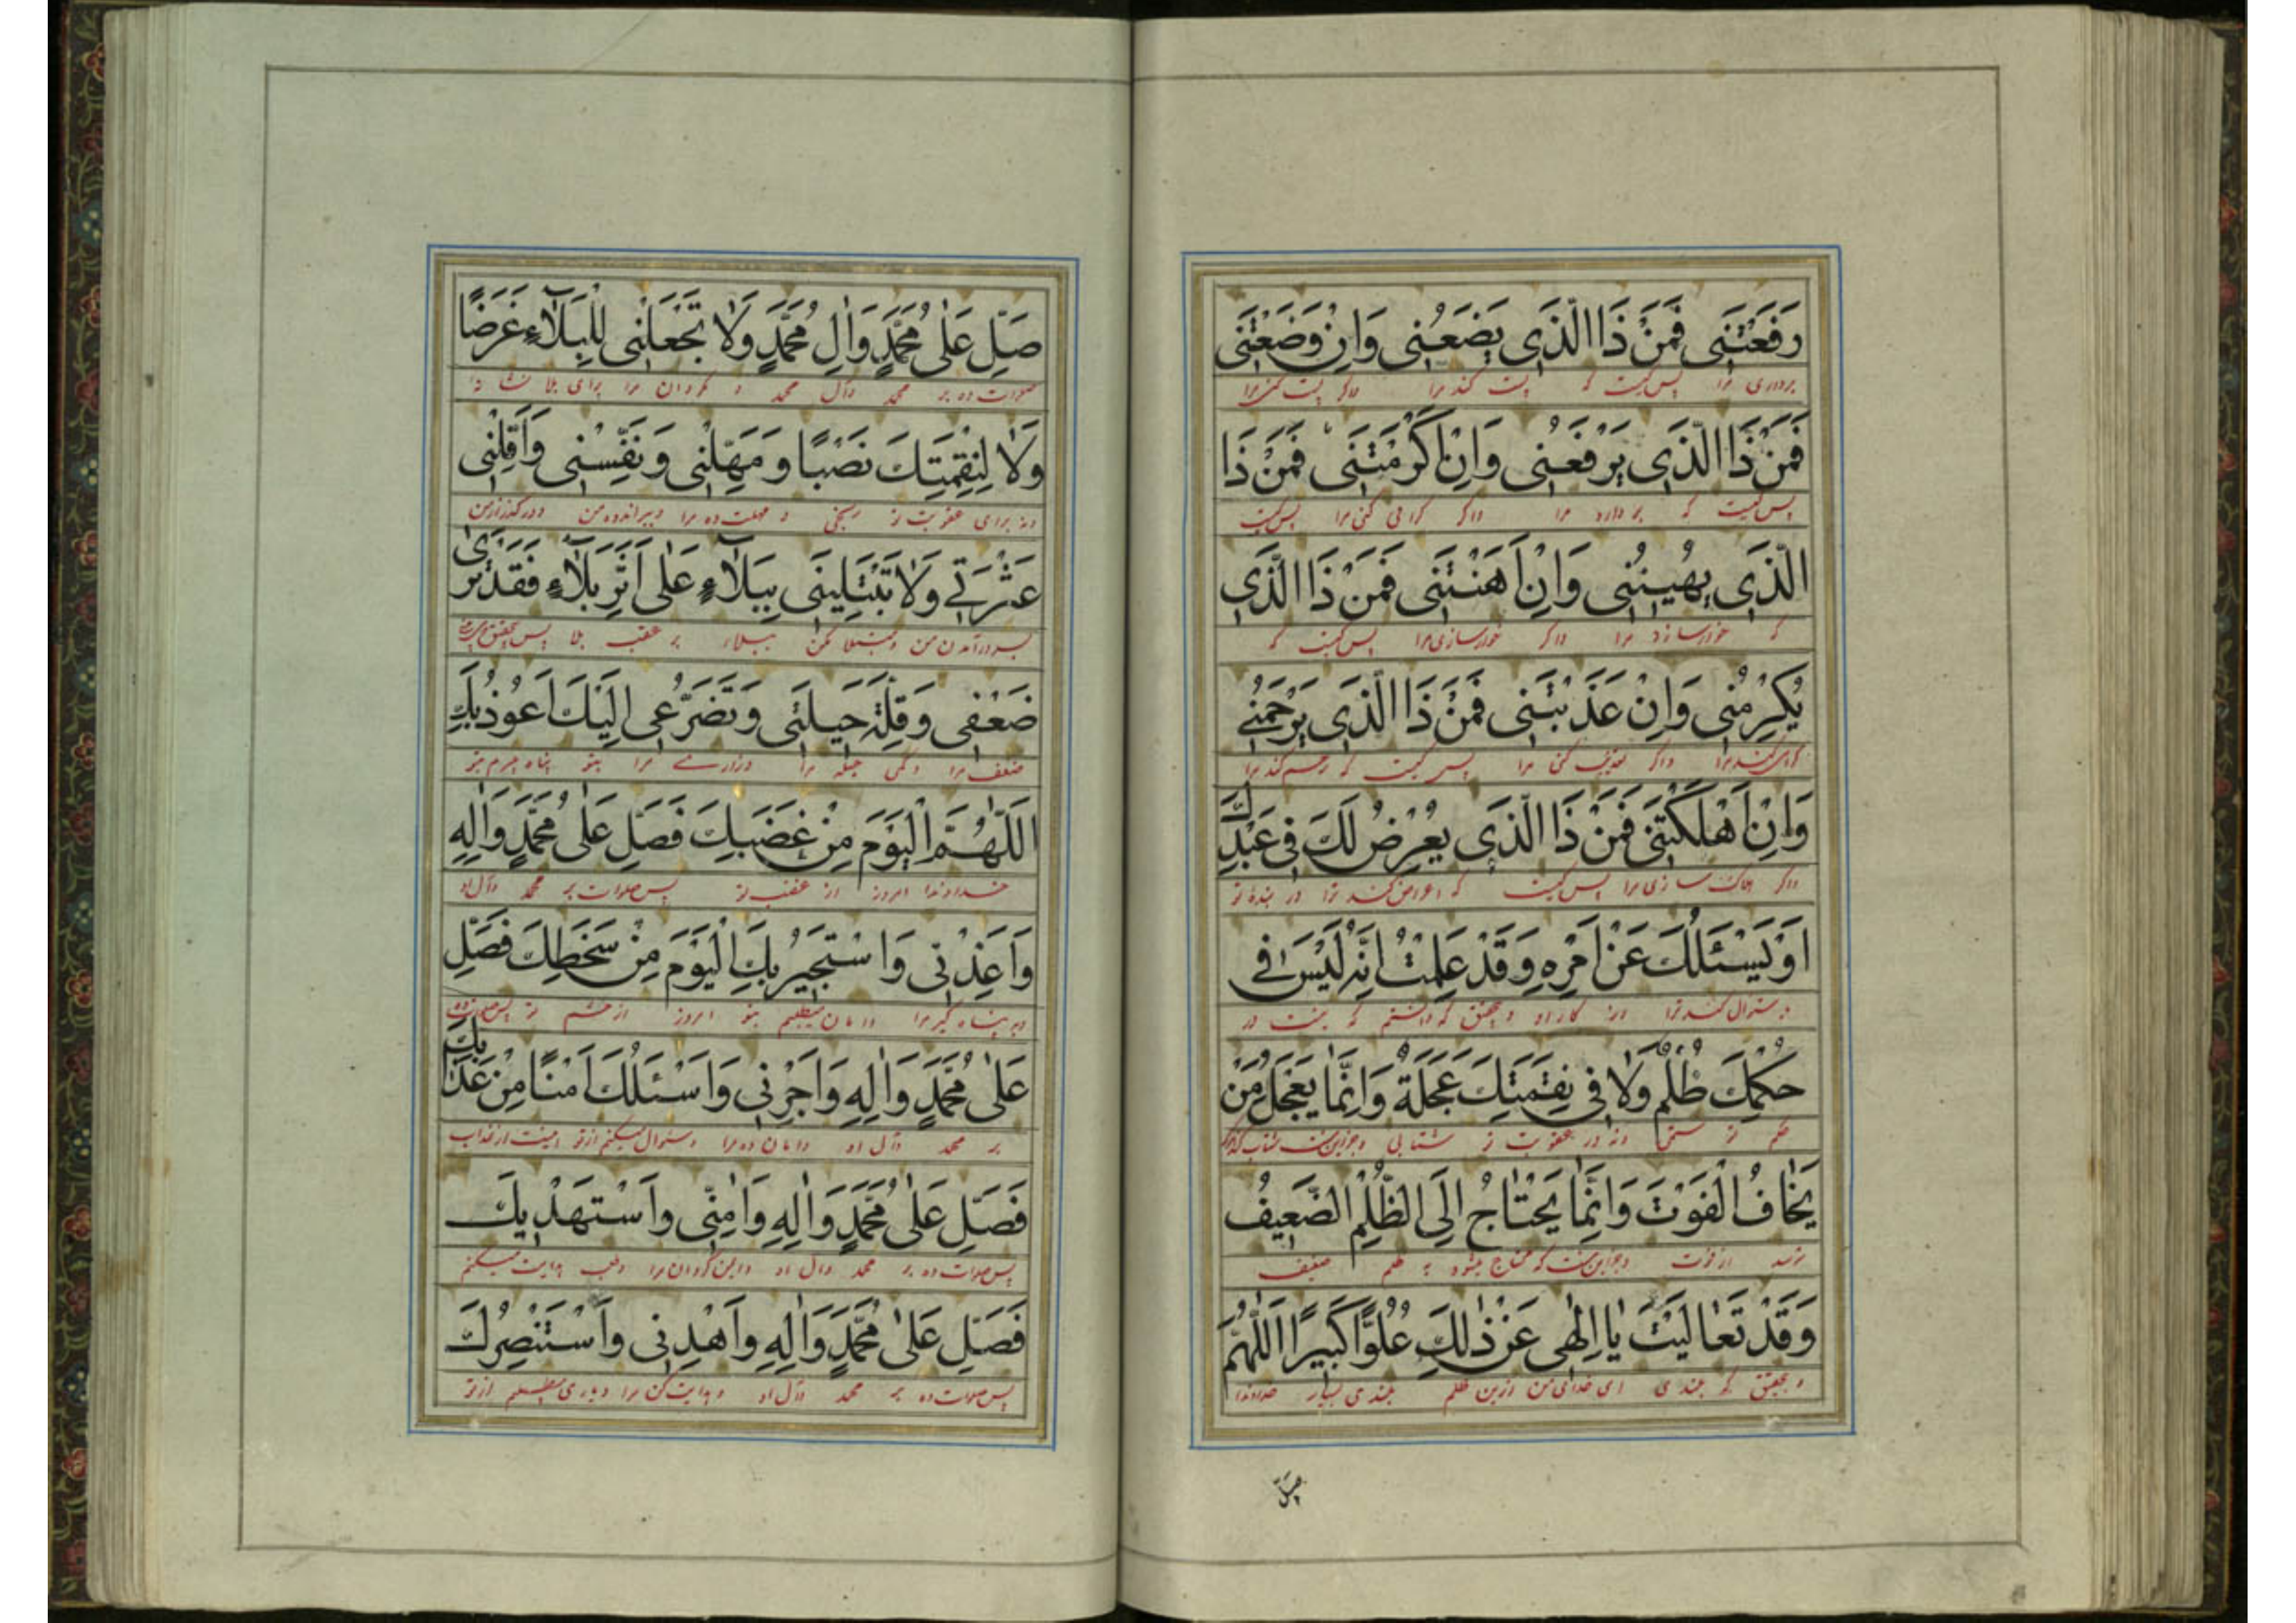 رَفَعْتَنِی فَمَنْ ذَا الَّذِی یَضَعُنِی وَاِنْ وَضَعْتَنِی
برداری مرا پس کیست که پست کند مرا واگر پست کنی مرا
فَمَنْ ذَا الَّذِی یَرْفَعُنِی وَاِنْ اَکْرَمْتَنِی فَمَنْ ذَا
پس کیست که بردارد مرا واگر گرامی کنی مرا پس کیست
الَّذِی یُهِینُنِی وَاِنْ اَهَنْتَنِی فَمَنْ ذَا الَّذِی
که خوار سازد مرا واگر خوار سازی مرا پس کیست که
یُکْرِمُنِی وَاِنْ عَذَّبْتَنِی فَمَنْ ذَا الَّذِی یَرْحَمُنِے
گرامی کند مرا واگر تعذیب کنی مرا پس کیست که رحم کند مرا
وَاِنْ اَهْلَکْتَنِی فَمَنْ ذَا الَّذِی یَعْرِضُ لَكَ فِی عَبْدِكَ
واگر هلاک سازی مرا پس کیست که اعراض کند ترا در بندهٔ تو
اَوْ یَسْئَلُكَ عَنْ اَمْرِهِ وَقَدْ عَلِمْتُ اَنَّهُ لَیْسَ فِے
و سئوال کند ترا از کار او و بتحقیق که دانستم که نیست در
حُکْمِكَ ظُلْمٌ وَلَا فِی نِقِمَتِكَ عَجَلَةٌ وَاِنَّمَا یَعْجَلُ مَنْ
حکم تو ستمی ونه در عقوبت تو شتابی وجز این نیست شتاب کند
یَخَافُ الْفَوْتَ وَاِنَّمَا یَحْتَاجُ اِلَی الظُّلْمِ الضَّعِیفُ
ترسد از فوت وجز این نیست که محتاج میشود به ظلم ضعیف
وَقَدْ تَعَالَیْتَ یَا اِلٰهِی عَنْ ذٰلِكَ عُلُوًّا کَبِیرًا اَللّٰهُمَّ
و بتحقیق که بلندی ای خدای من ازین ظلم بلندی بسیار خداوندا
صَلِّ
صَلِّ عَلٰی مُحَمَّدٍ وَاٰلِ مُحَمَّدٍ وَلَا تَجْعَلْنِی لِلْبَلَآءِ غَرَضًا
صلوات ده بر محمد وآل محمد و مگردان مرا برای بلا نشانه
وَلَا لِنِقِمَتِكَ نَصْبًا وَ مَهِّلْنِی وَ نَفِّسْنِی وَاَقِلْنِی
ونه برای عقوبت تو رنجی و مهلت ده مرا وببر اندوه من ودر گذر از من
عَثْرَتِے وَلَا تَبْتَلِیَنِی بِبَلَآءٍ عَلٰی اَثَرِ بَلَآءٍ فَقَدْ تَرٰی
بسر درآمدن من ومبتلا مکن ببلاء بر عقب بلا پس بتحقیق می بینی
ضَعْفِی وَقِلَّةَ حِیلَتِی وَتَضَرُّعِی اِلَیْكَ اَعُوذُ بِكَ
ضعف مرا وکمی حیله مرا وزاری مرا بتو پناه میبرم بتو
اَللّٰهُمَّ الْیَوْمَ مِنْ غَضَبِكَ فَصَلِّ عَلٰی مُحَمَّدٍ وَاٰلِهِ
خداوندا امروز از غضب تو پس صلوات بر محمد وآل او
وَاَعِذْنِی وَاَسْتَجِیرُ بِكَ الْیَوْمَ مِنْ سَخَطِكَ فَصَلِّ
ودر پناه گیر مرا وامان میطلبم بتو امروز از خشم تو پس صلوات ده
عَلٰی مُحَمَّدٍ وَاٰلِهِ وَاَجِرْنِی وَاَسْئَلُكَ اَمْنًا مِنْ عَذَابِكَ
بر محمد وآل او وامان ده مرا وسئوال میکنم از تو امنیت از عذاب
فَصَلِّ عَلٰی مُحَمَّدٍ وَاٰلِهِ وَاٰمِنِّی وَاَسْتَهْدِیكَ
پس صلوات ده بر محمد وآل او وایمن گردان مرا وطلب هدایت میکنم
فَصَلِّ عَلٰی مُحَمَّدٍ وَاٰلِهِ وَاهْدِنِی وَاَسْتَنْصِرُكَ
پس صلوات ده بر محمد وآل او وهدایت کن مرا ویاری میطلبم از تو